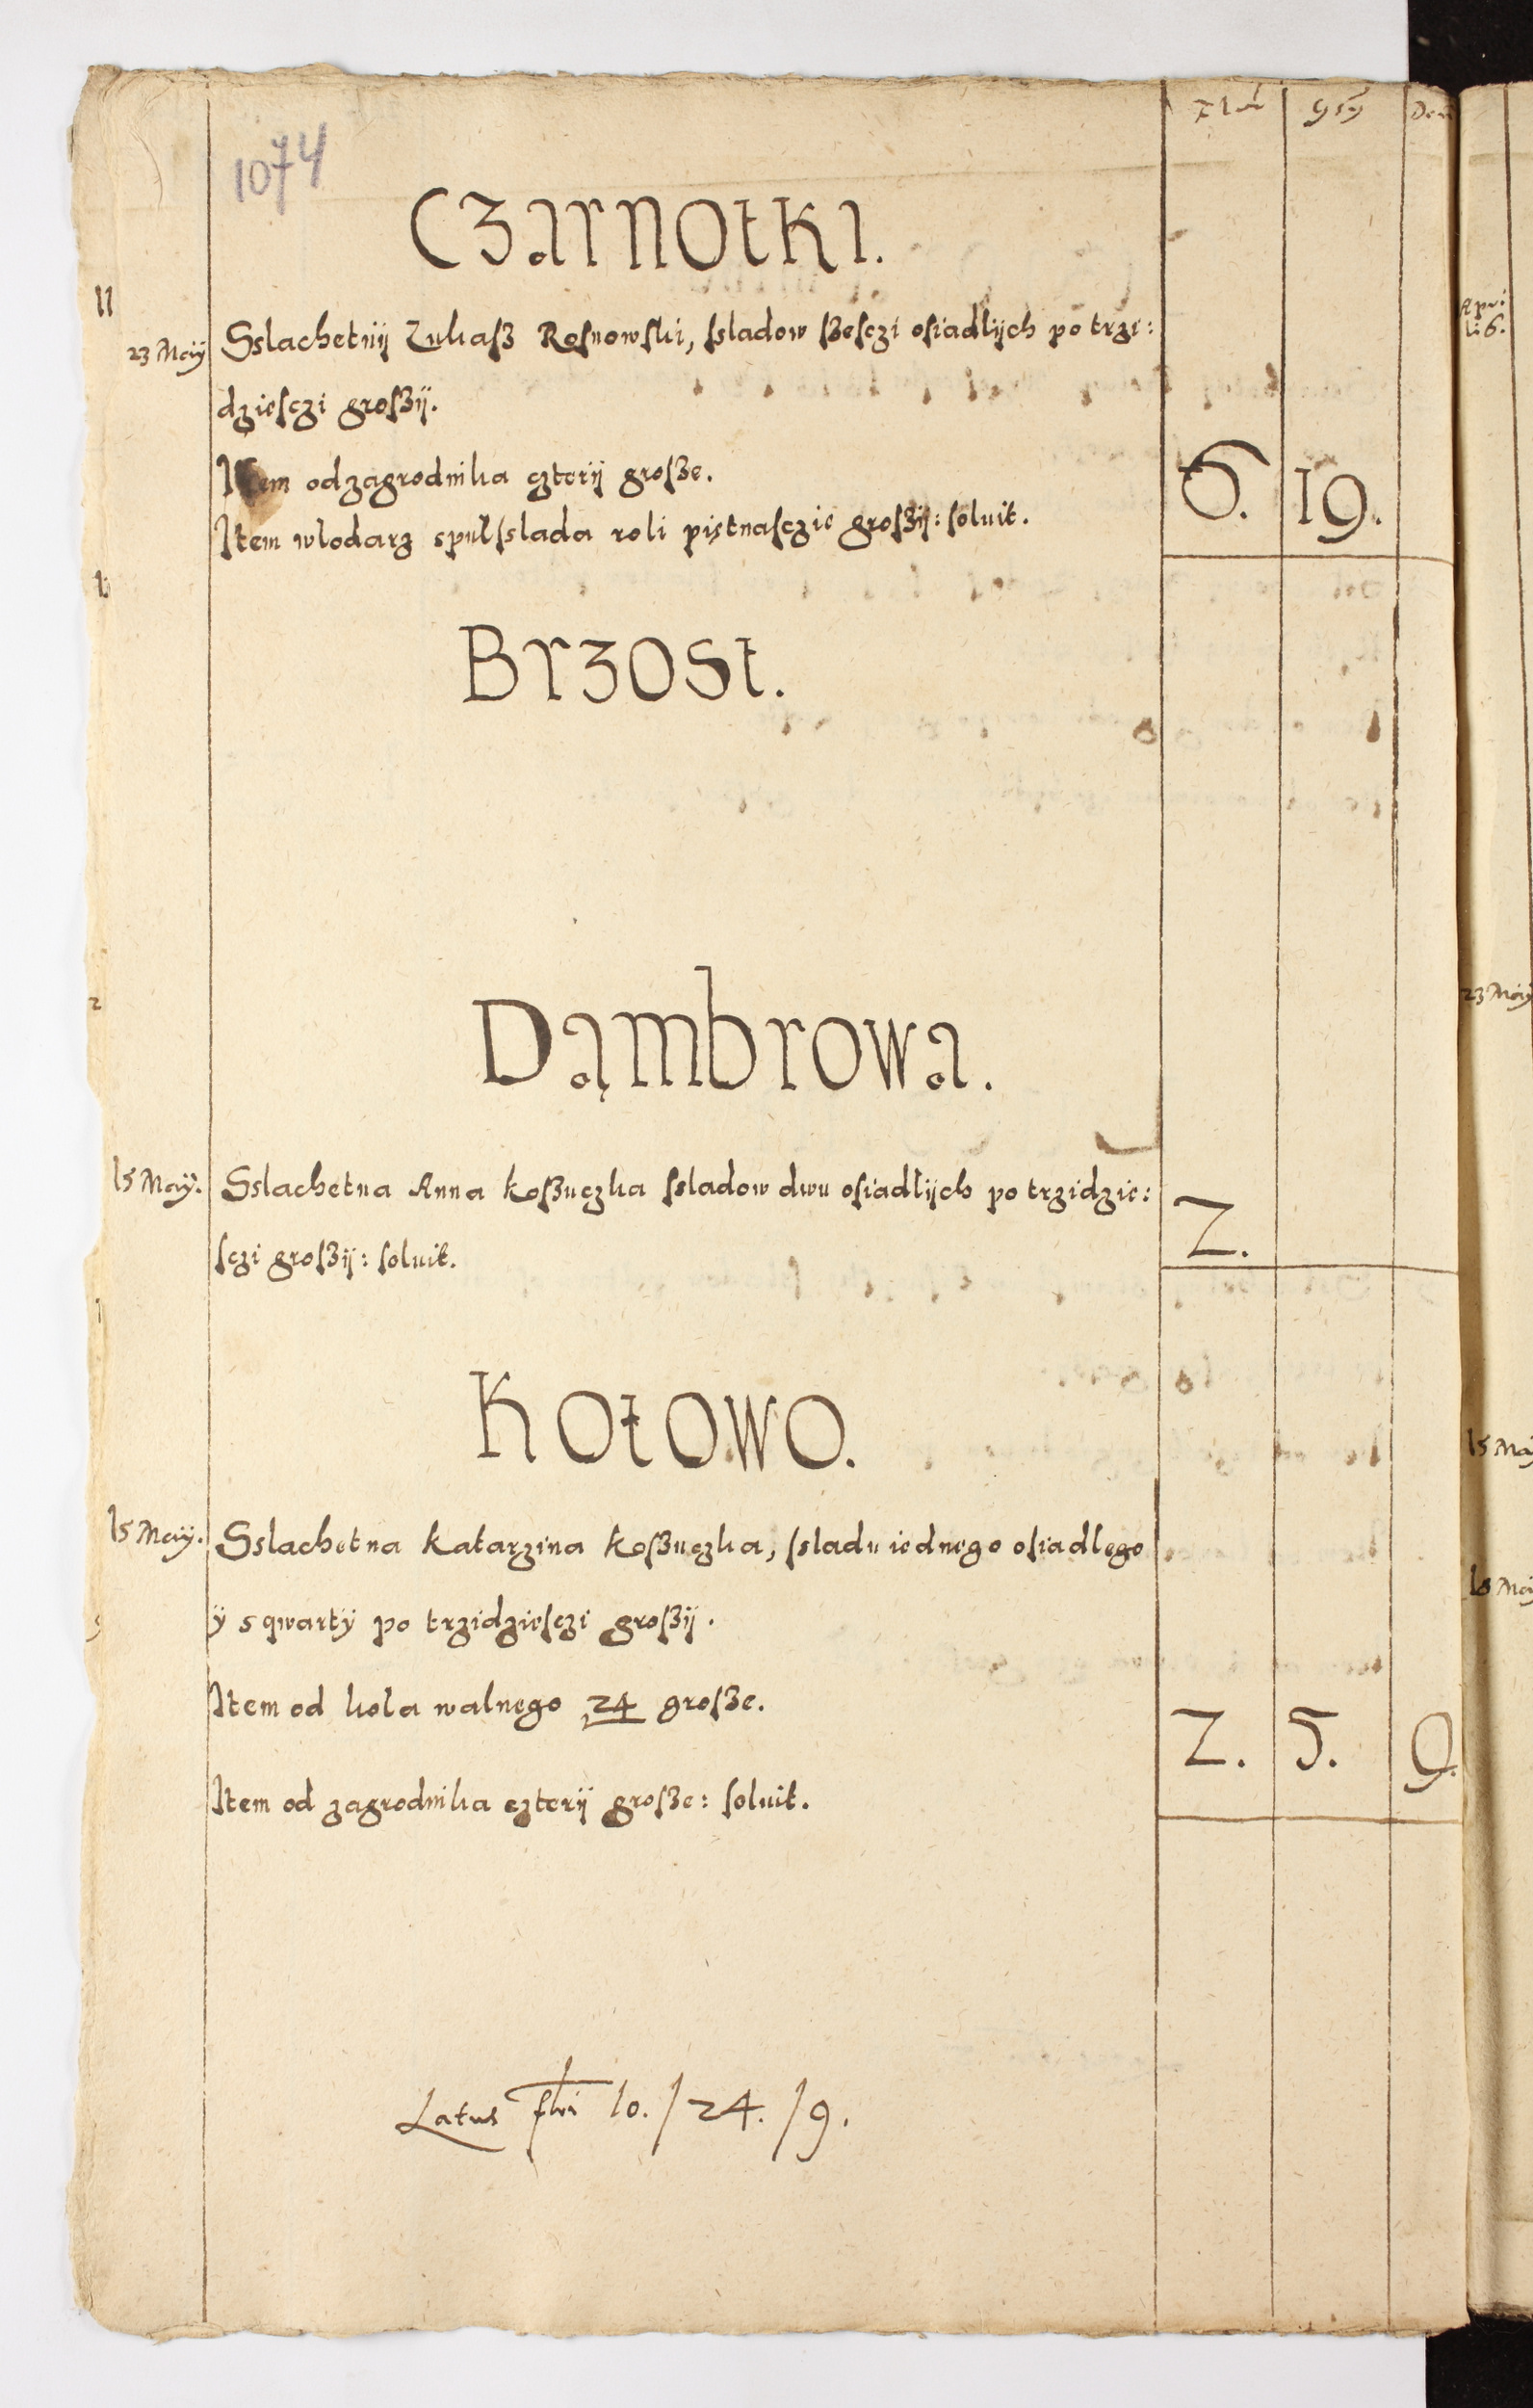 Flni grꝫ Den
1074
Czarnotki.
23 Maij Sslachetnij Lukaſz Roſnowſki, ſsladow ſzeſczi oſiadlijch po trzi:
dzieſczi groſzij.
Item od zagrodnika czterij groſze.
Item wlodarz s pułſslada roli piętnaſczie groſzij: ſoluit. 6. 19.
Brzost.
Dąmbrowa.
15 Maij. Sslachetna Anna Koſzuczka ſsladow dwu oſiadlijch po trzidzie:
ſczi groſzij: ſoluit. 2.
Kotowo.
15 Maij. Sslachetna Katarzina Koſzuczka, ſsladu iednego oſiadlego
ÿ s qwartÿ po trzidzieſczi groſzij.
Item od kola walnego 24 groſze.
Item od zagrodnika czterij groſze: ſoluit. 2. 5. 9.
Latus flni 10. / 24. / 9.
Apri
lis.
23 Maij
15 Maij